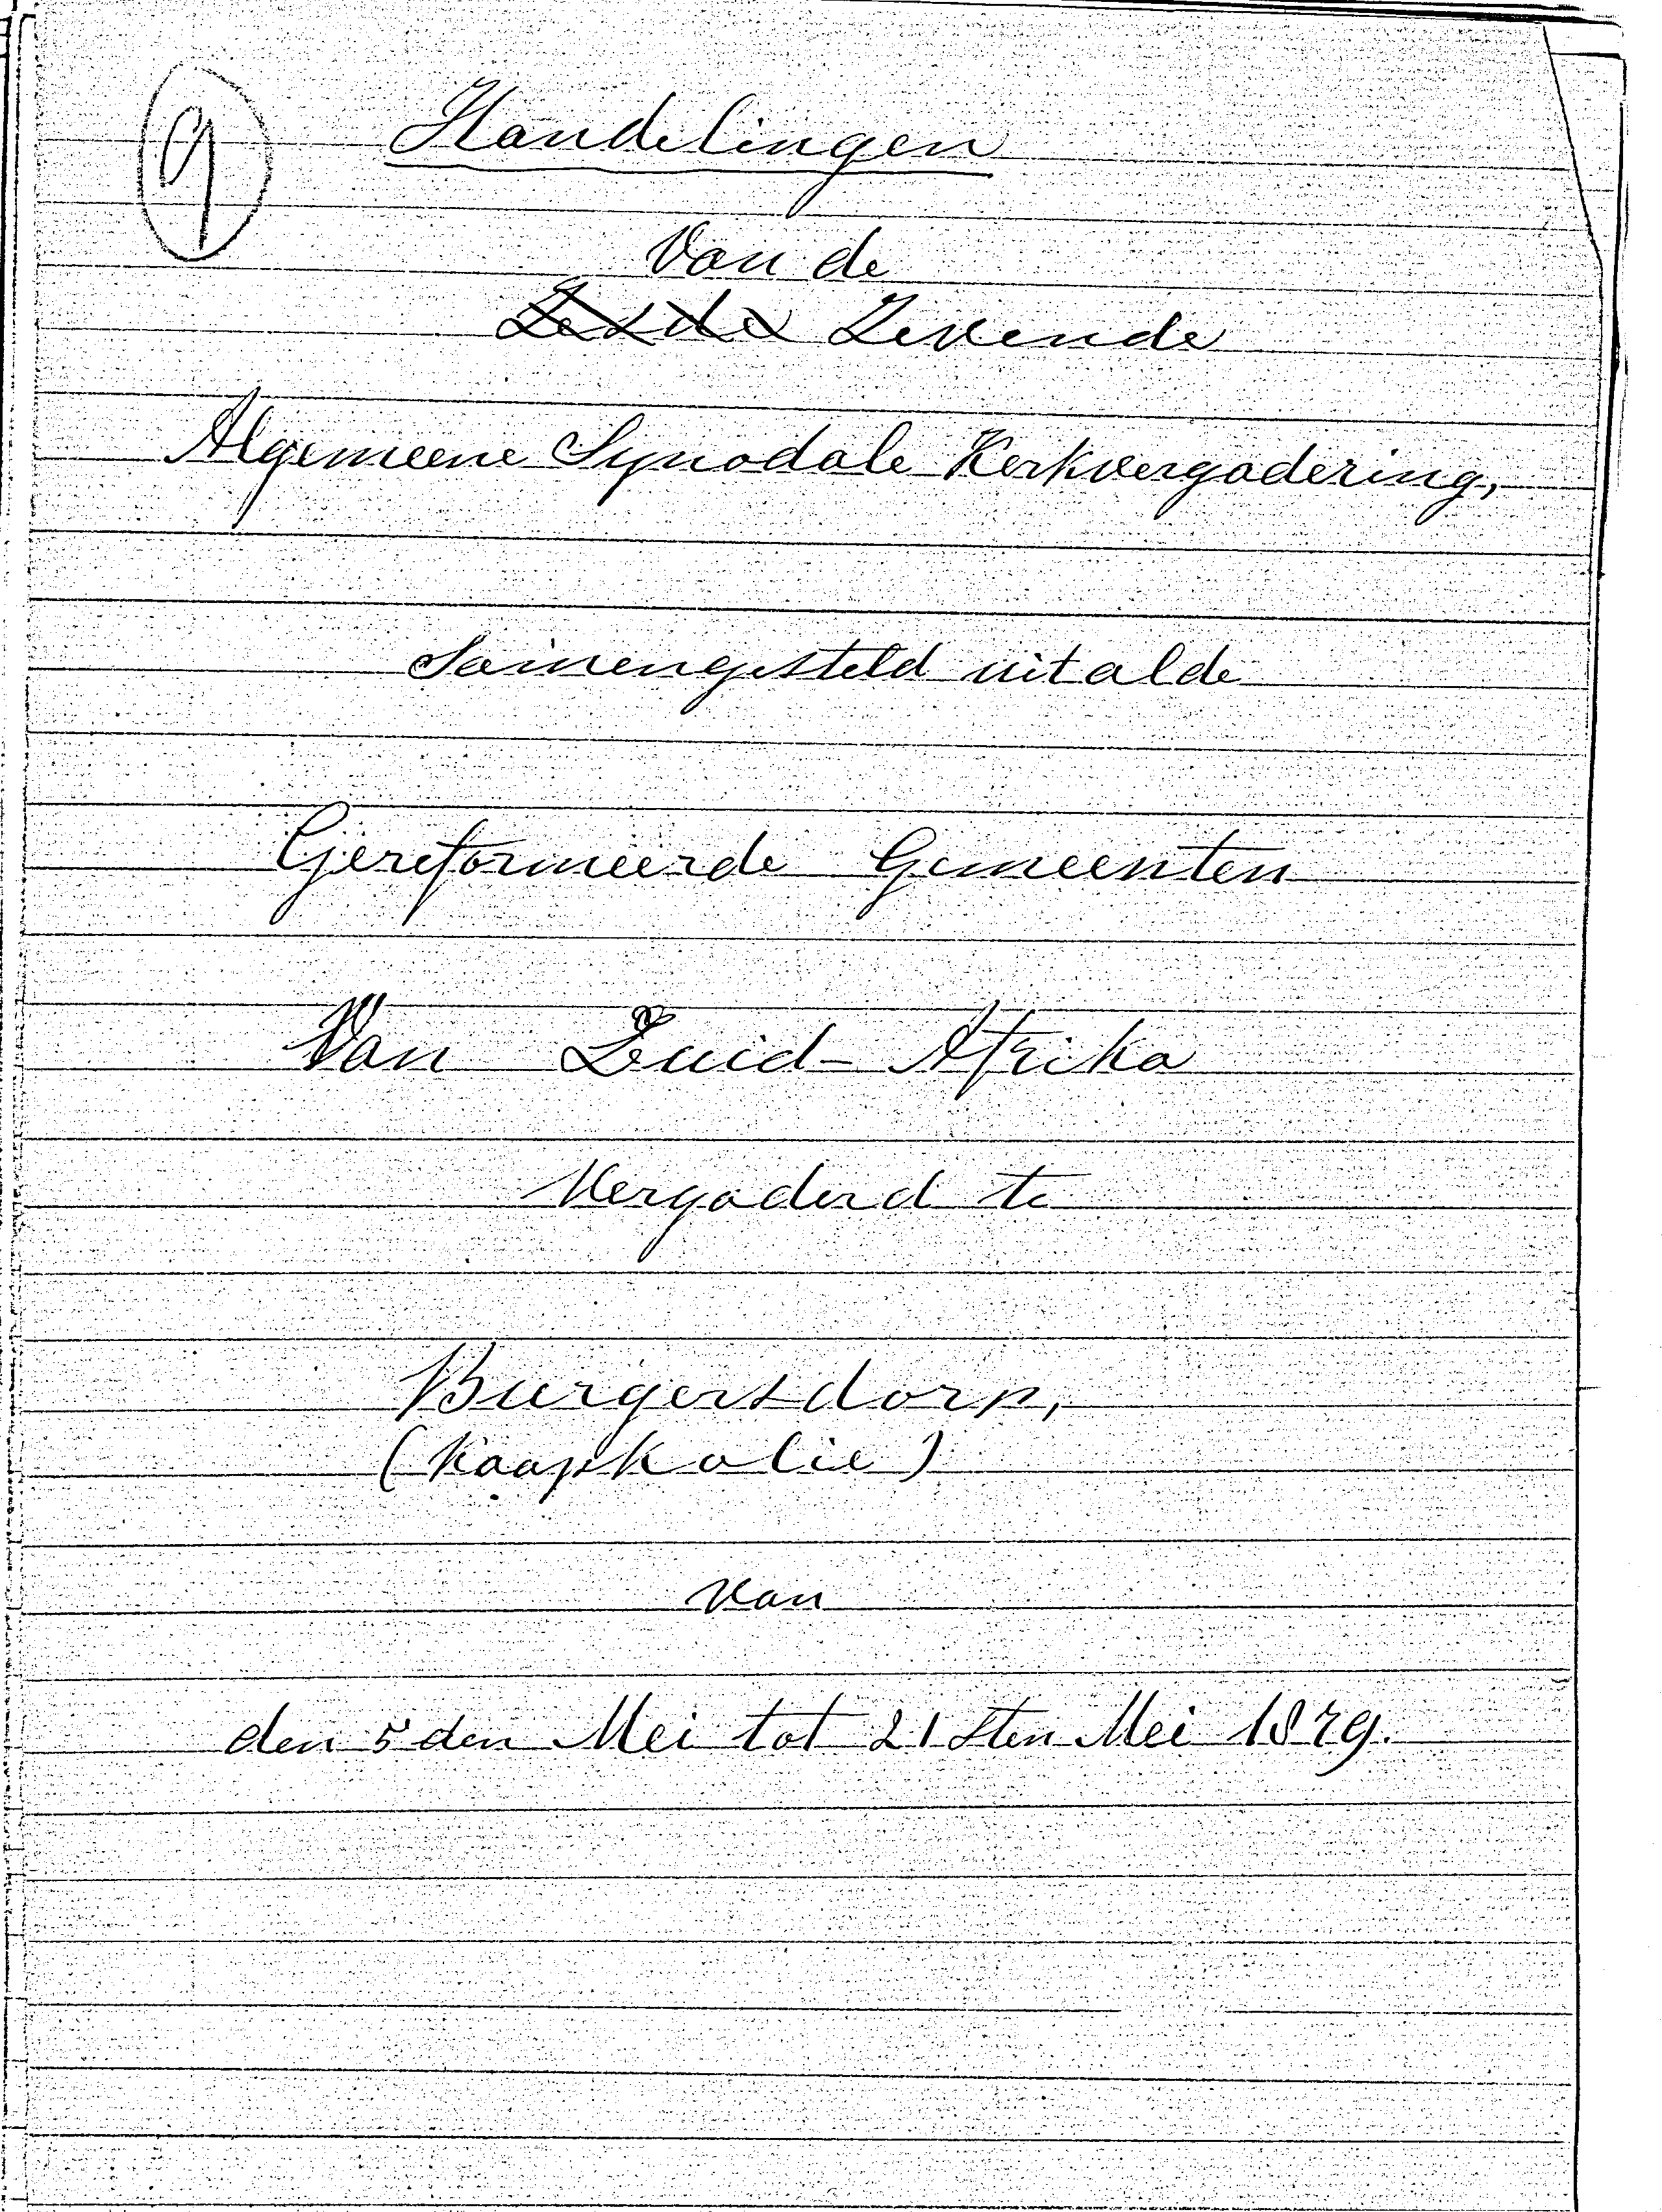 9 Handelingen
Van de
Zesde Zevende
Algemeene Synodale Kerkvergadering,
Samengesteld uit al de
Gereformeerde Gemeenten
Van Zuid-Afrika
Vergaderd te
Burgersdorp,
(Kaapkolie)
van
den 5 den Mei tot 21sten Mei 1879.